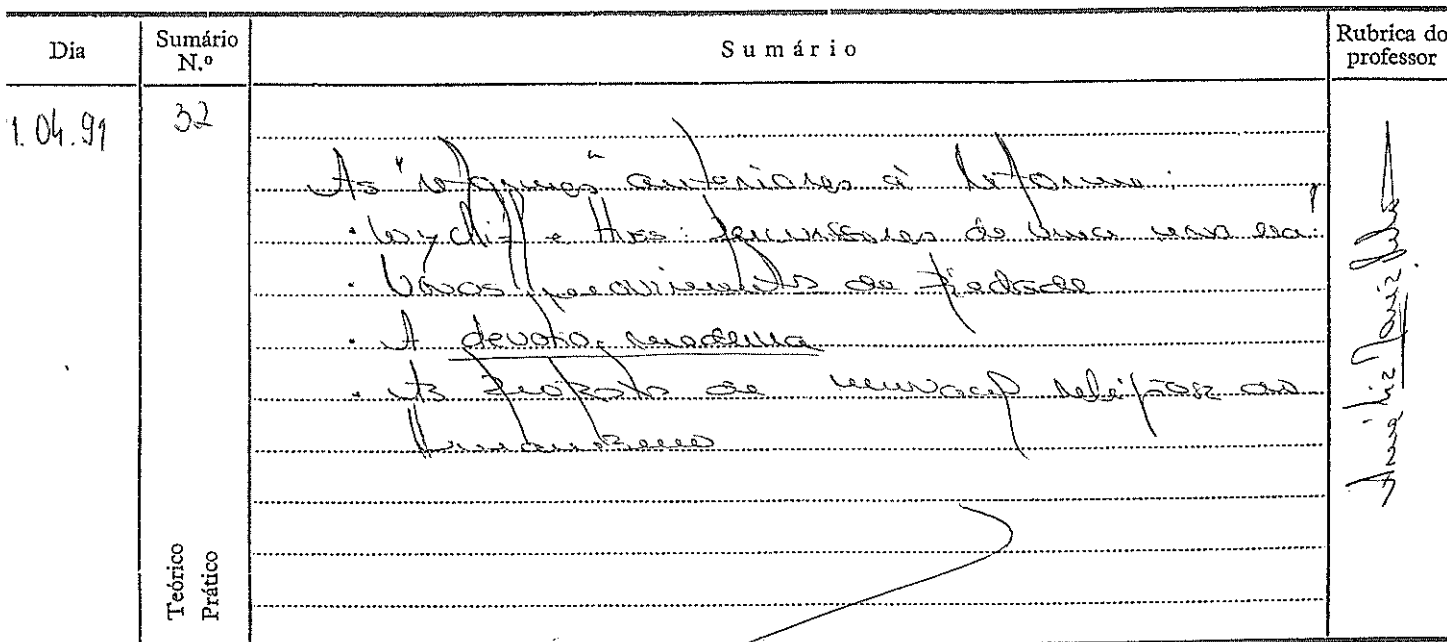 Dia
Sumário N.º
Sumário
Rubrica do professor
1.04.91
32
As "reformas" anteriores à Reforma:
· Wyclif e Hus: precursores de uma nova era?
· Novos movimentos de piedade
· A devotio moderna
· As propostas de renovação religiosa do
Humanismo
Teórico
Prático